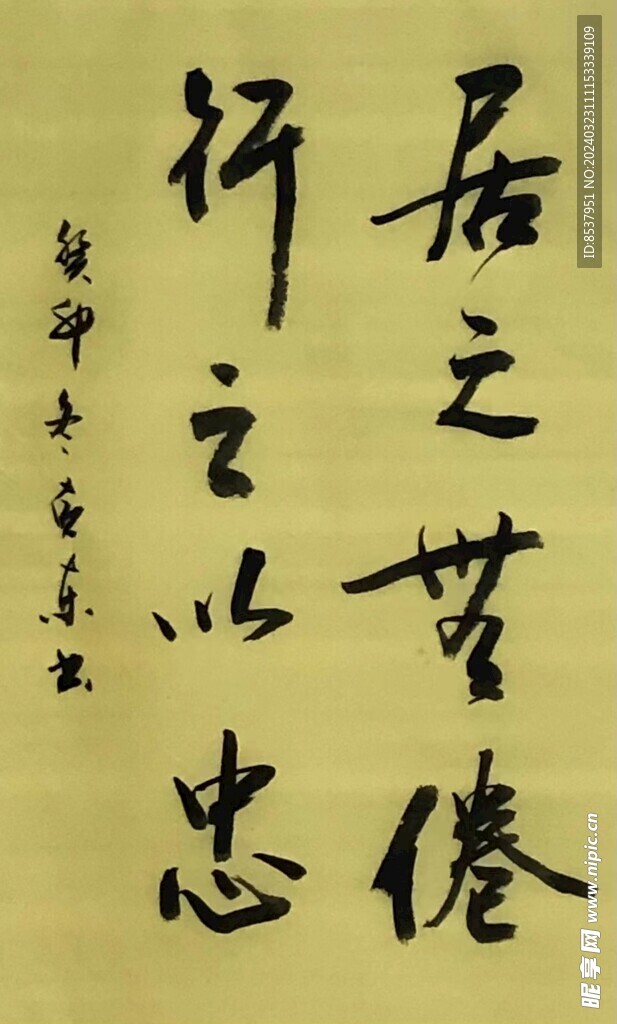 居之無倦
行之以忠
癸卯冬克东书
ID:8537951 NO:20240323111153339109
昵享网 www.nipic.cn